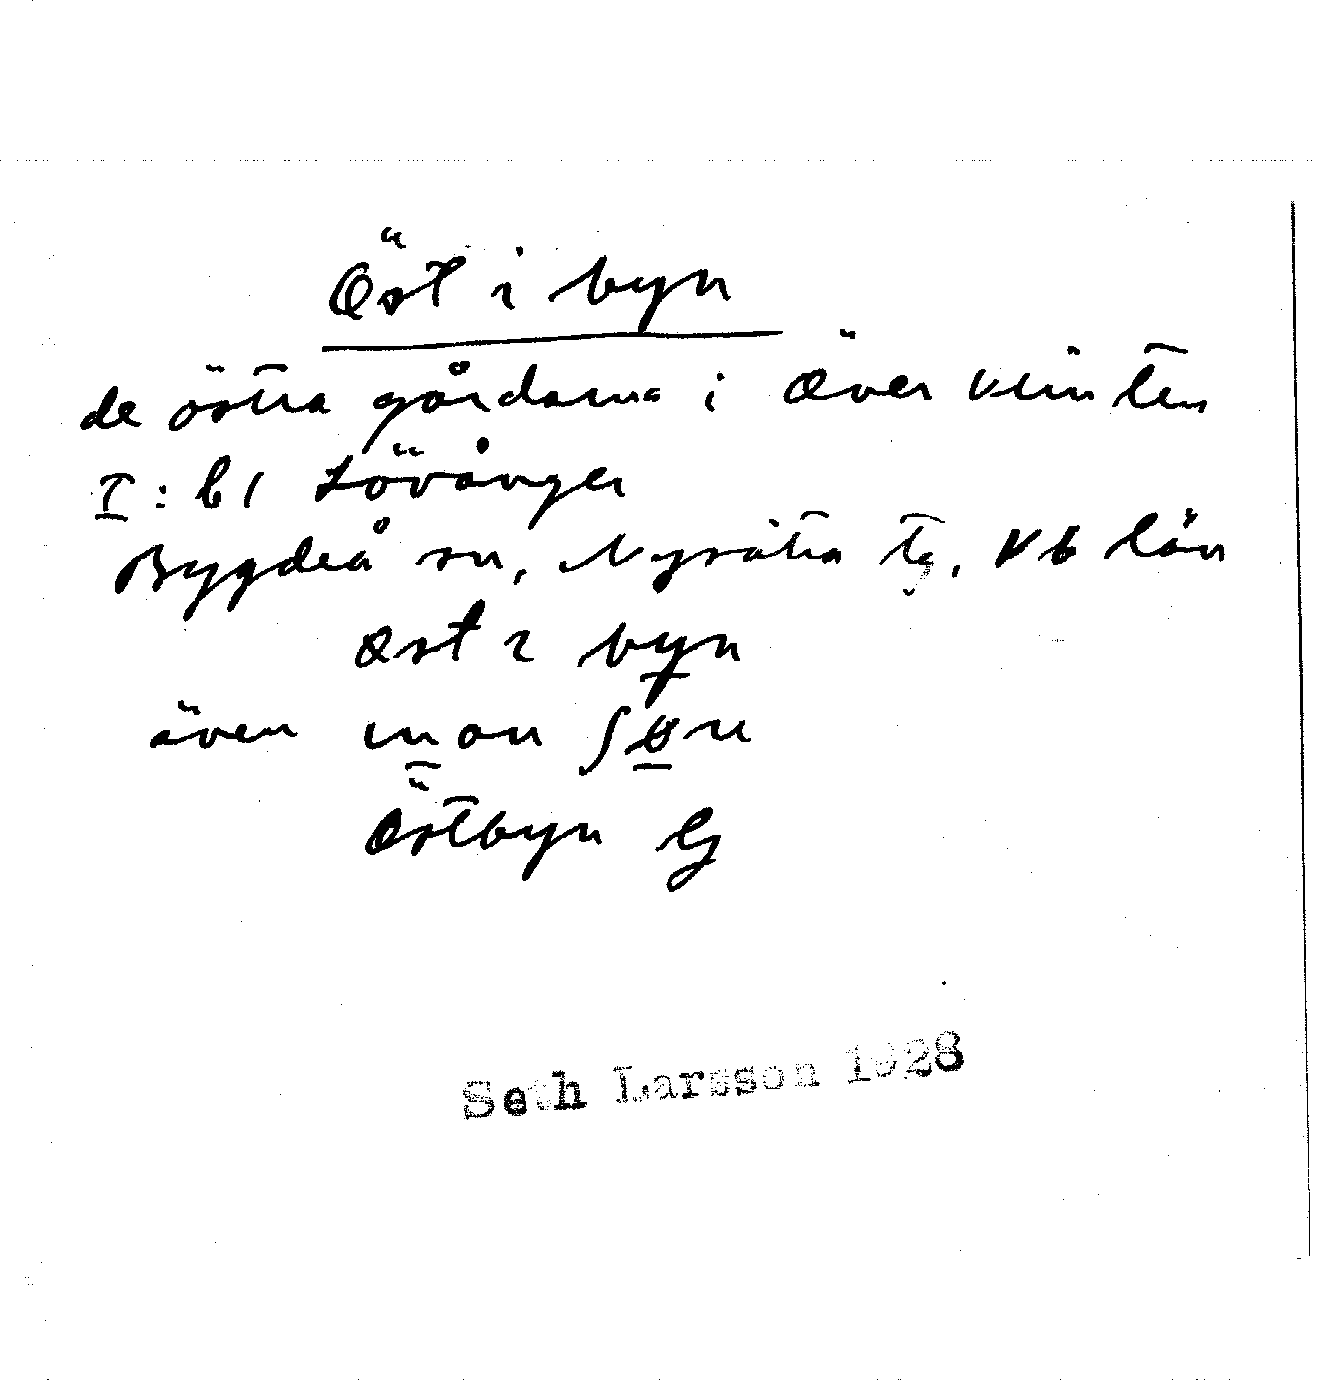 Öst i byn
de östra gårdarna i Över
I : b 1 Lövånger
Bygdeå sn, Nysätra tg, Vb län
øst ı byn
även
Östbyn
Seth Larsson 1928